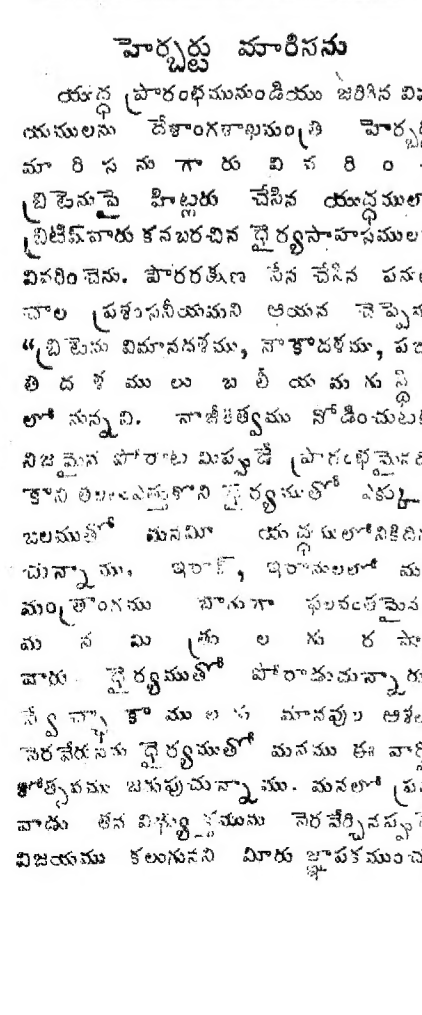 హెర్బర్టు మారిసను
యుద్ధ ప్రారంభమునుండియు జరిగిన విష
యములను దేశాంగశాఖమంత్రి హెర్బర్టు
మారిసనుగారు వివరిం-
బ్రిటనుపై హిట్లరు చేసిన యుద్ధములో
బ్రిటిష్‌వారు కనబరచిన ధైర్యసాహసముల
వివరించెను. పౌరరక్షణ సేన చేసిన పనుల
చాల ప్రశంసనీయమని ఆయన చెప్పెను
“బ్రిటను విమానదళము, నౌకాదళము, పదా
తిదళములు బలీయమగుస్థి
లో నున్నవి. నాజీతత్వము నోడించుటకు
నిజమైన పోరాట మిప్పుడే ప్రారంభమైనది
కాని తలయెత్తుకొని ధైర్యముతో ఎక్కువ
బలముతో మనమీ యుద్ధములోనికిదిగు
చున్నాము. ఇరాక్, ఇరానులలో మన
మంత్రాంగము బాగుగా ఫలవంతమైన
మనమిత్రులగుర
వారు ధైర్యముతో పోరాడుచున్నారు
స్వేచ్ఛాకాములగు మానవుల ఆశలు
నెరవేరునను ధైర్యముతో మనము ఈ వార్షి
కోత్సవము జరుపుచున్నాము. మనలో ప్రతి
వాడు తన నెరవేర్చినప్పుడే
విజయము కలుగునని మీరు జ్ఞాపకముంచు